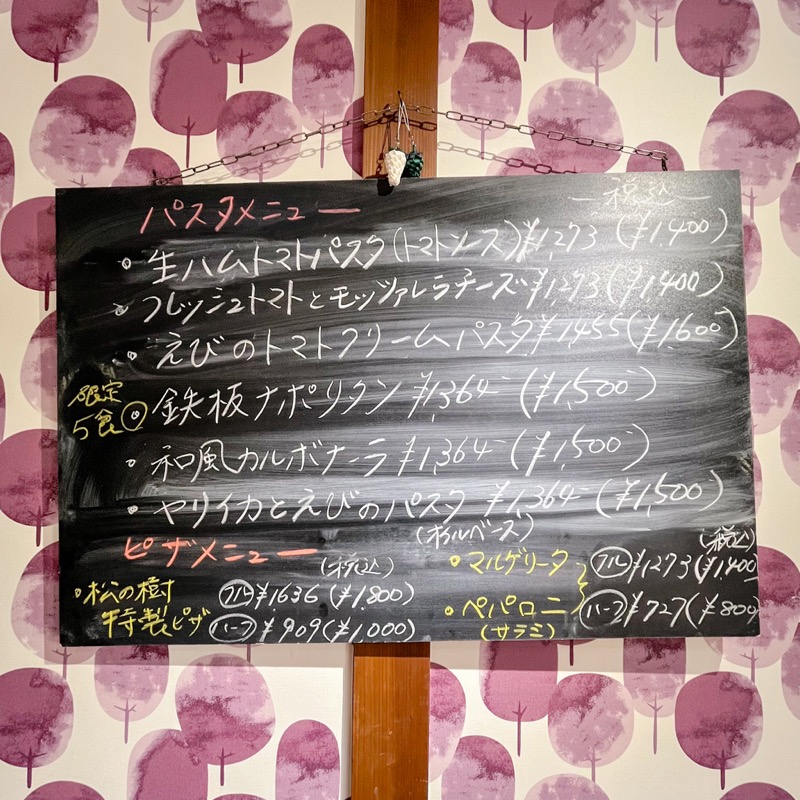 パスタメニュー
税込
・生ハムトマトパスタ(トマトソース)¥1,273 (¥1,400)
・フレッシュトマトとモッツァレラチーズ¥1,273(¥1,400)
・えびのトマトクリームパスタ¥1,455(¥1,600)
限定
5食
・鉄板ナポリタン ¥1,364 (¥1,500)
・和風カルボナーラ ¥1,364 (¥1,500)
・ヤリイカとえびのパスタ ¥1,364 (¥1,500)
(オイルベース)
ピザメニュー
(税込)
・松の樹
特製ピザ
フル ¥1,636 (¥1,800)
ハーフ ¥909 (¥1,000)
(税込)
・マルゲリータ
・ペパロニ
(サラミ)
フル ¥1273 (¥1,400)
ハーフ ¥727 (¥800)